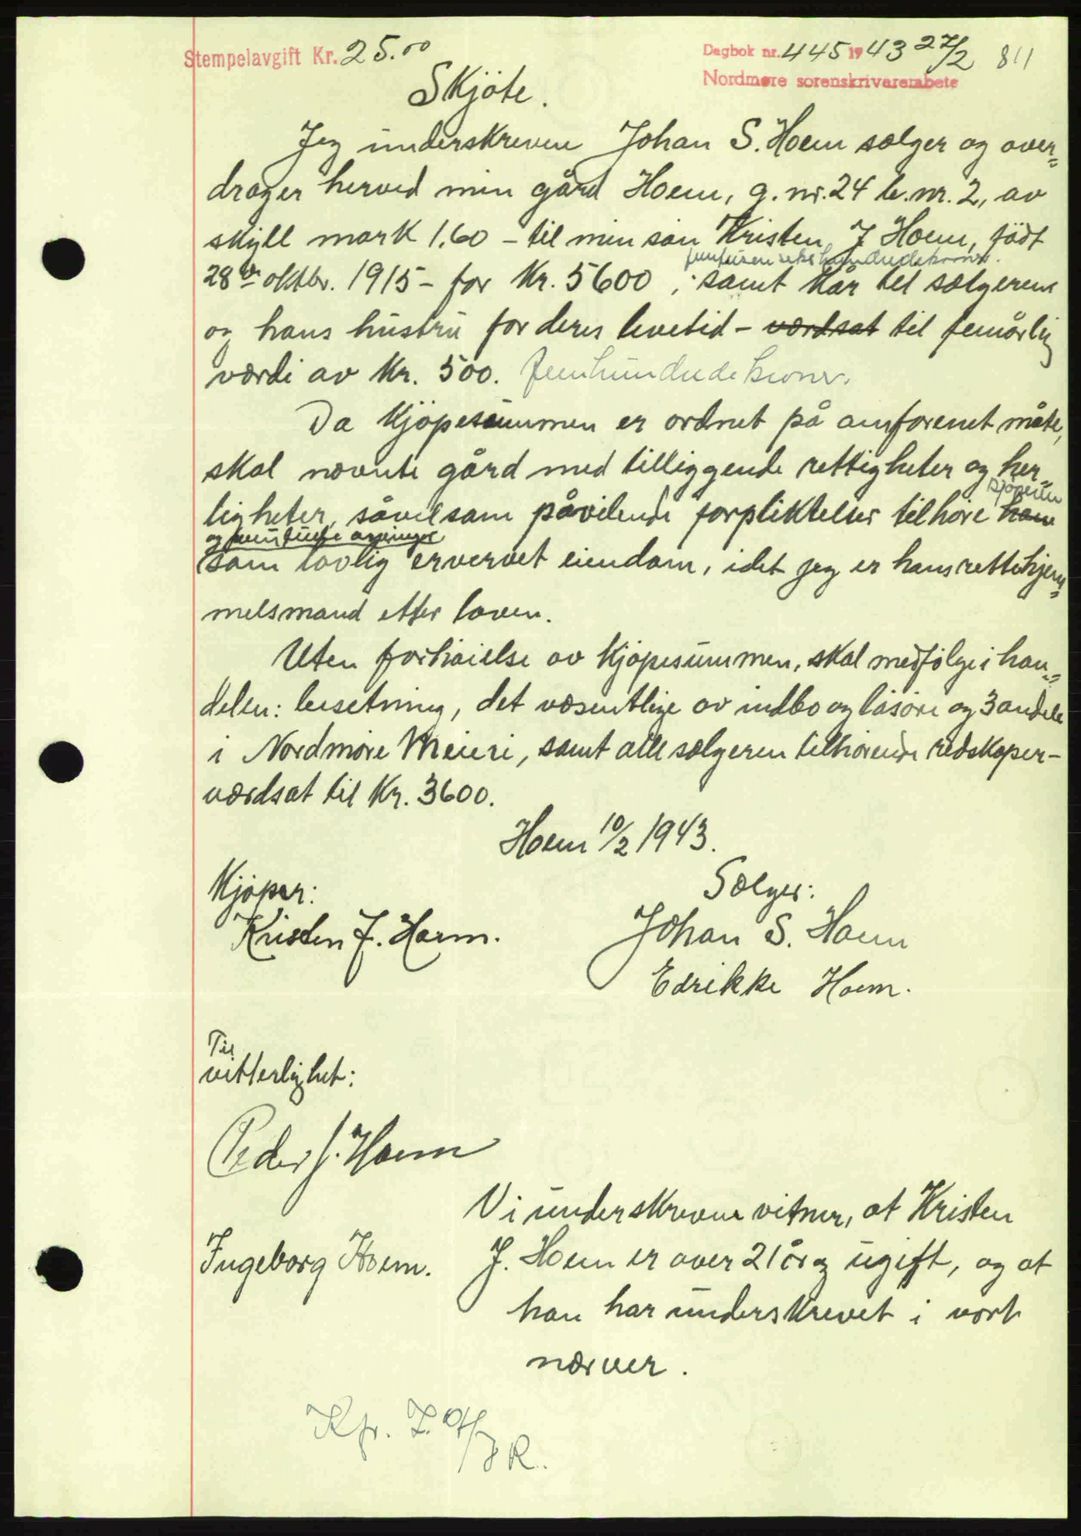 Stempelavgift Kr. 25.00
Dagbok nr. 445 1943 27/2 811
Nordmøre sorenskrivarembete
Skjöte.
Jeg underskreven Johan S. Hoem sælger og over=
drager herved min gård Hoem, g.nr. 24 b.nr. 2, av
skyll mark 1.60 – til min søn Kristen J Hoem, födt
28de oktbr. 1915 – for Kr. 5600, samt kår til sælgeren
femtusensekshundredekroner.
og hans hustru for deres levetid – værdsat til femårlig
værdi av Kr. 500. femhundredekroner.
Da kjöpesummen er ordnet på omforenet måte,
skal nævnte gård med tilliggende rettigheter og her=
ligheter, såvelsom påvilende forpliktelser tilhöre ham kjöperen
som lovlig ervervet eiendom, idet jeg er hans rette hjem=
melsmand efter loven.
Uten forhöielse av kjöpesummen, skal medfölge i han=
delen: besetning, det væsentlige av indbo og lösöre og 3 andele
i Nordmöre Meieri, samt alle sælgeren tilhörende redskaper –
værdsat til Kr. 3600.
Hoem 10/2 1943.
Kjöper: Sælger:
Kristen J. Hoem. Johan S. Hoem
Edrikke Hoem.
Til
vitterlighet:
Peder J. Hoem
Vi underskrevne vitner, at Kristen
Ingeborg Hoem. J. Hoem er over 21 år og ugift, og at
han har underskrevet i vort
nærver.
Kfr.